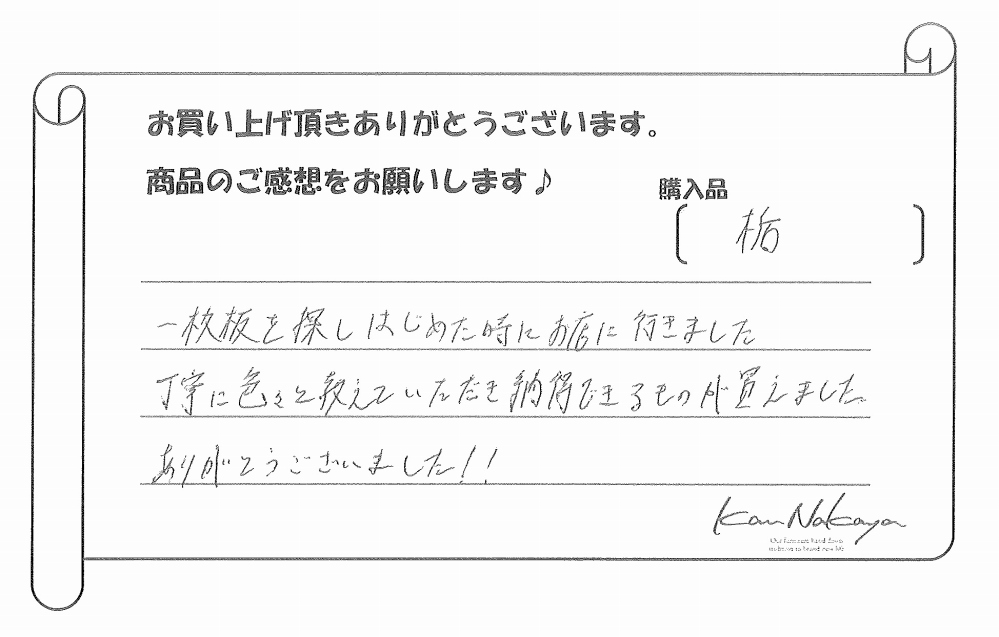 お買い上げ頂きありがとうございます。
商品のご感想をお願いします♪
購入品
〔 栃 〕
一枚板を探しはじめた時にお店に行きました
丁寧に色々と教えていただき納得できるものが買えました。
ありがとうございました!!
Kan Nakaya